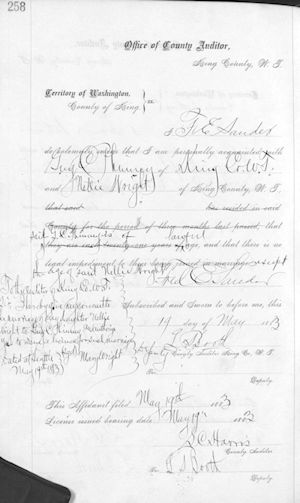 258
Office of County Auditor,
King County, W. T.
Territory of Washington,
County of King, } ss.
I, F. E. Sander
do solemnly swear that I am personally acquainted with
C. Kinney of King Co. W. T.
and Nellie Wright of King County, W. T.
that said has resided in said
County for the period of three months last passed, that
said is of lawful
they are each twenty-one years of age, and that there is no
legal impediment to their being joined in marriage except
the age of said Nellie Wright
F. E. Sander
Subscribed and Sworn to before me, this
19 day of May 1883
L. S. Booth
County Auditor King Co. W. T.
Deputy.
To the Auditor of King Co. W. T.
I hereby give my consent to
the marriage of my daughter Nellie
Wright to C. Kinney
you to issue a license for said marriage
Dated at Seattle
May 19th 1883
Mary Wright
This Affidavit filed May 19th 1883
License issued bearing date May 19th 1883
L. C. Harris
County Auditor
Per L. S. Booth
Deputy.